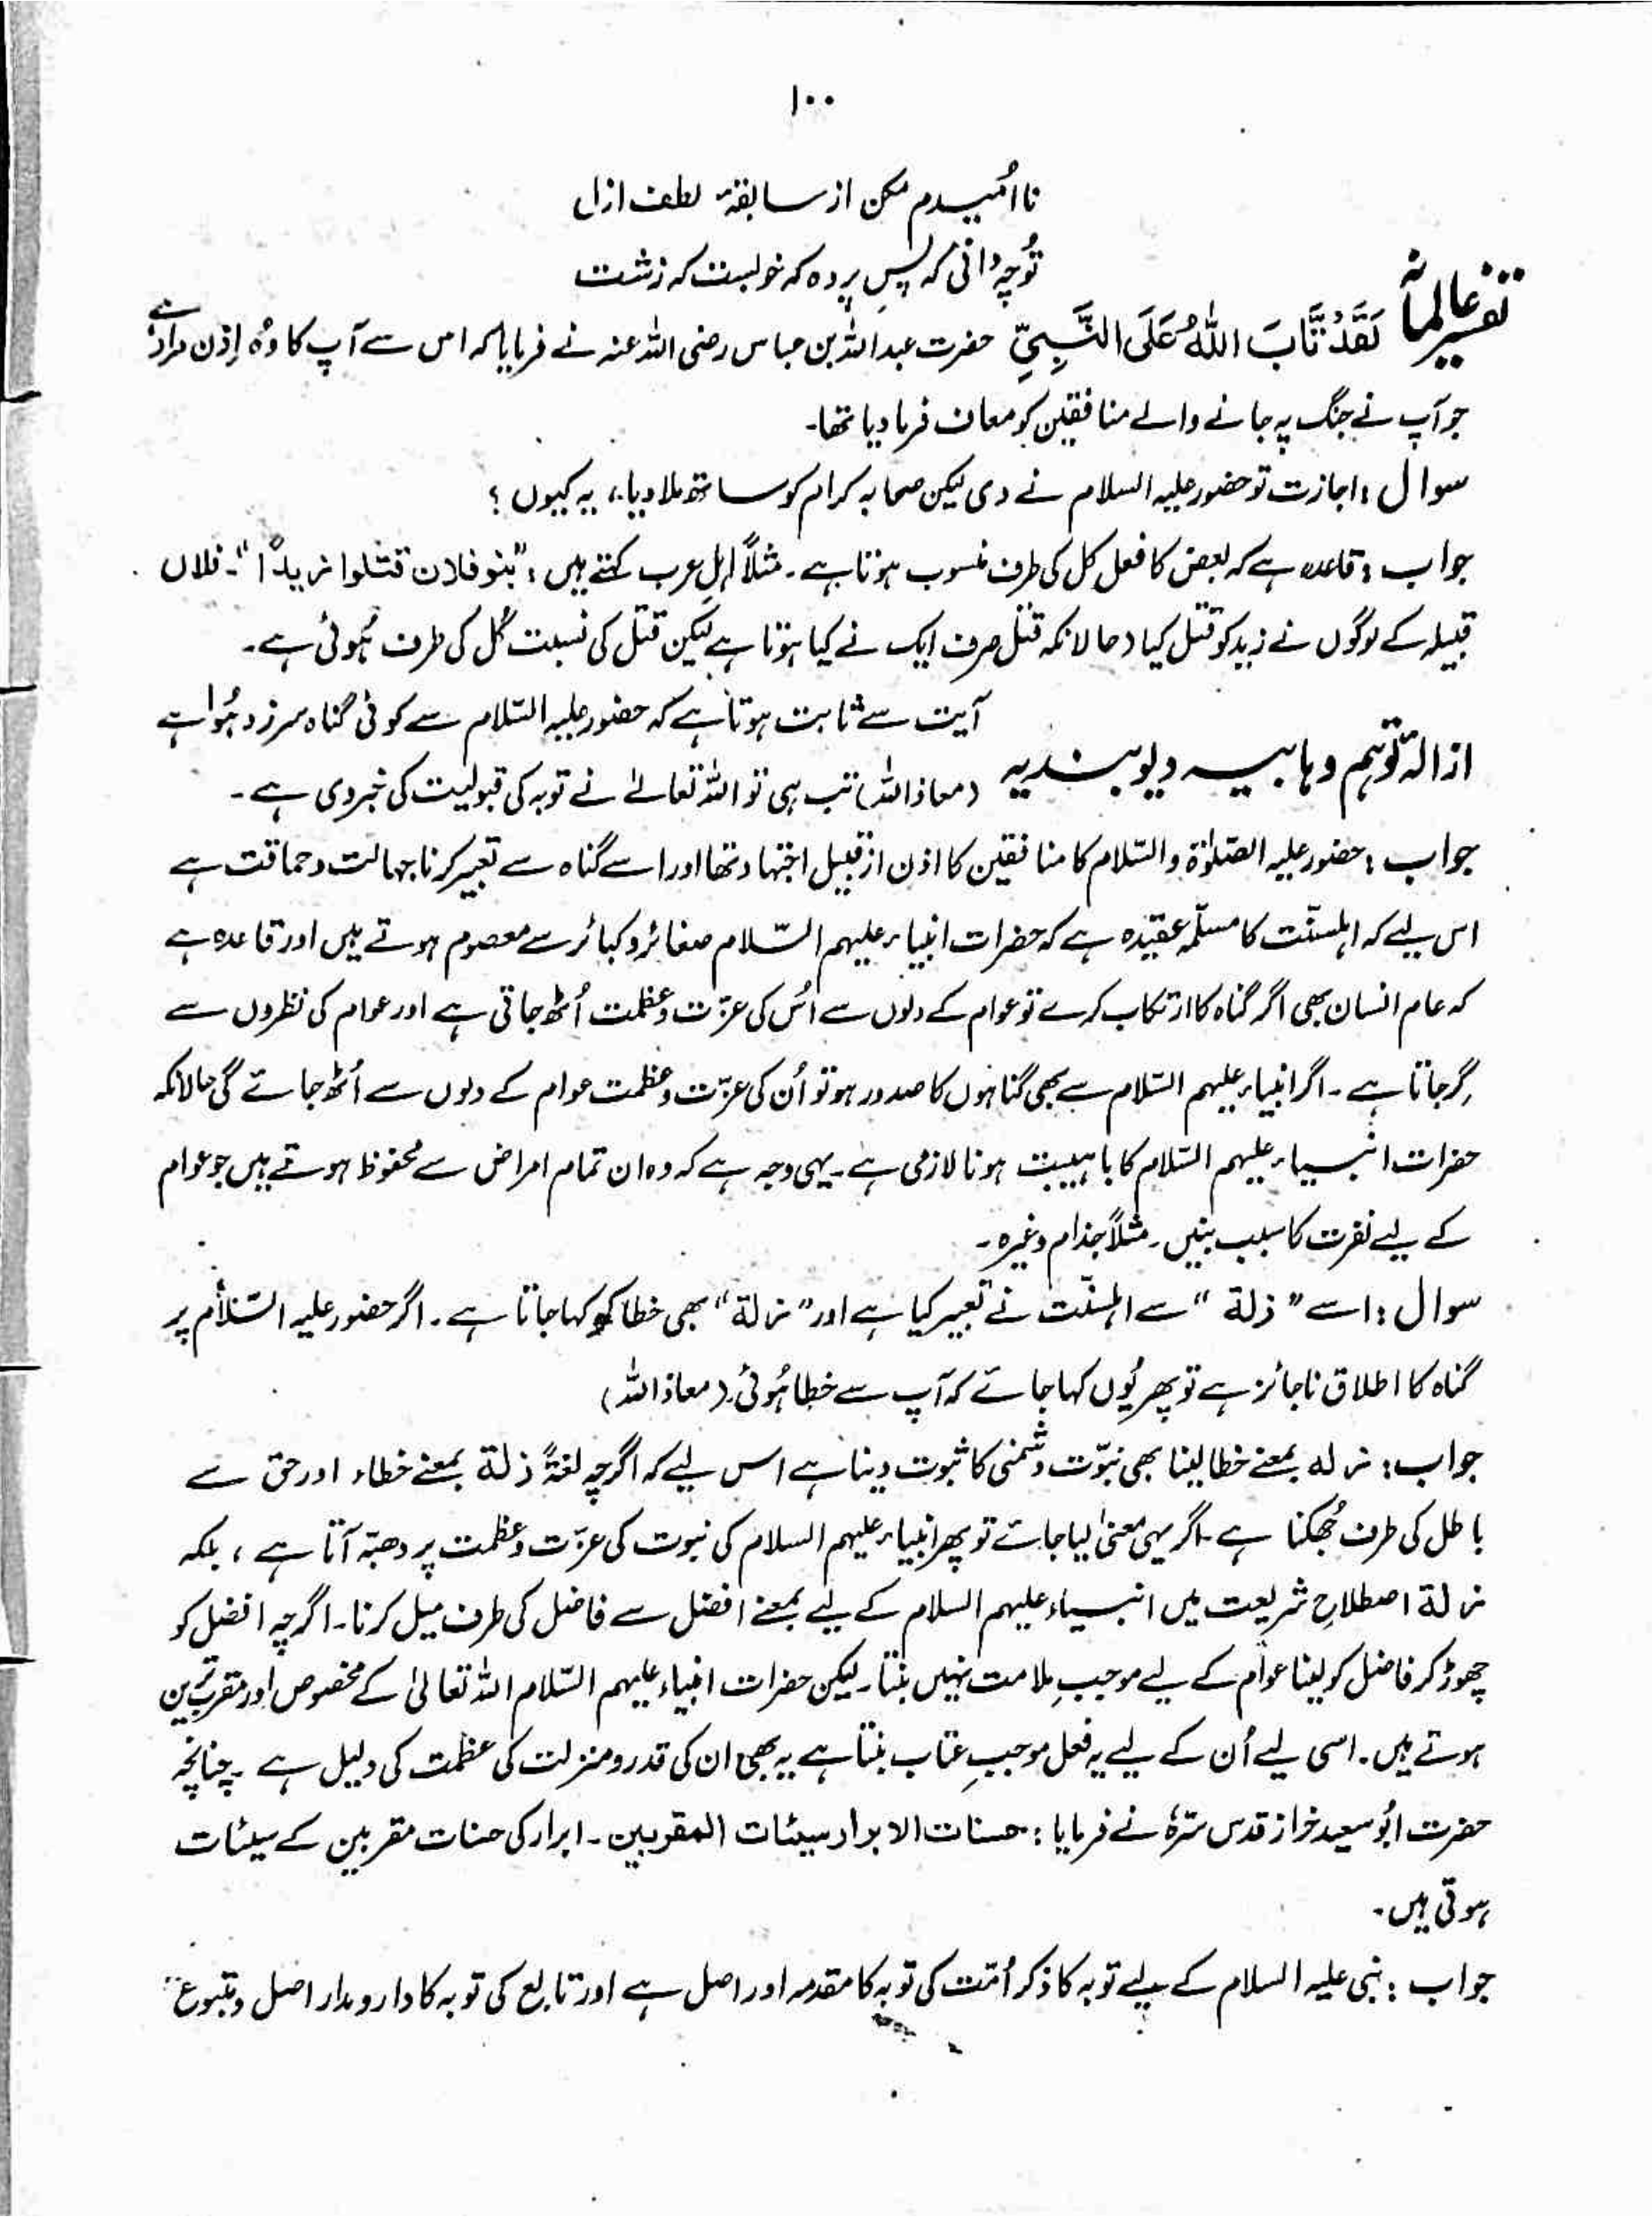 ۱۰۰
نا اُمیدم مکن از سابقۂ لطف ازل
تُو چہ دانی کہ پسِ پردہ کہ خوبست کہ زشت
تفسیر عالمانہ لَقَدْ تَّابَ اللّٰهُ عَلَى النَّبِيِّ حضرت عبداللہ بن عباس رضی اللہ عنہ نے فرمایا کہ اس سے آپ کا وُہ اِذن مراد ہے
جو آپ نے جنگ پہ جانے والے منافقین کو معاف فرما دیا تھا۔
سوال : اجازت تو حضور علیہ السلام نے دی لیکن صحابہ کرام کو ساتھ ملا دیا، یہ کیوں ؟
جواب : قاعدہ ہے کہ بعض کا فعل کل کی طرف منسوب ہوتا ہے۔ مثلاً اہلِ عرب کہتے ہیں : "بنو فلان قتلوا زیدًا"۔ فلاں
قبیلہ کے لوگوں نے زید کو قتل کیا (حالانکہ قتل صرف ایک نے کیا ہوتا ہے لیکن قتل کی نسبت کُل کی طرف ہُوئی ہے۔
ازالۂ توہّم وہابیہ دیوبندیہ آیت سے ثابت ہوتا ہے کہ حضور علیہ السّلام سے کوئی گناہ سرزد ہُوا ہے
(معاذ اللہ) تب ہی تو اللہ تعالےٰ نے توبہ کی قبولیت کی خبر دی ہے۔
جواب : حضور علیہ الصّلوٰۃ والسّلام کا منافقین کا اذن از قبیل اجتہاد تھا اور اسے گناہ سے تعبیر کرنا جہالت و حماقت ہے
اس لیے کہ اہلسنّت کا مسلّمہ عقیدہ ہے کہ حضرات انبیاء علیہم السّلام صغائر و کبائر سے معصوم ہوتے ہیں اور قاعدہ ہے
کہ عام انسان بھی اگر گناہ کا ارتکاب کرے تو عوام کے دلوں سے اُس کی عزّت و عظمت اُٹھ جاتی ہے اور عوام کی نظروں سے
گِر جاتا ہے۔ اگر انبیاء علیہم السّلام سے بھی گناہوں کا صدور ہو تو اُن کی عزّت و عظمت عوام کے دلوں سے اُٹھ جائے گی حالانکہ
حضرات انبیاء علیہم السّلام کا باہیبت ہونا لازمی ہے۔ یہی وجہ ہے کہ وہ ان تمام امراض سے محفوظ ہوتے ہیں جو عوام
کے لیے نفرت کا سبب بنیں۔ مثلاً جذام وغیرہ۔
سوال : اسے "ذلة" سے اہلسنّت نے تعبیر کیا ہے اور "زلة" بھی خطا کو کہا جاتا ہے۔ اگر حضور علیہ السّلام پر
گناہ کا اطلاق ناجائز ہے تو پھر یُوں کہا جائے کہ آپ سے خطا ہُوئی۔ (معاذ اللہ)
جواب : زلہ بمعنے خطا لینا بھی نبوّت دشمنی کا ثبوت دینا ہے اس لیے کہ اگرچہ لغۃً ذلة بمعنے خطاء اور حق سے
باطل کی طرف جُھکنا ہے۔ اگر یہی معنیٰ لیا جائے تو پھر انبیاء علیہم السلام کی نبوت کی عزّت و عظمت پر دھبّہ آتا ہے، بلکہ
زلة اصطلاحِ شریعت میں انبیاء علیہم السلام کے لیے بمعنے افضل سے فاضل کی طرف میل کرنا۔ اگرچہ افضل کو
چھوڑ کر فاضل کو لینا عوام کے لیے موجبِ ملامت نہیں بنتا۔ لیکن حضرات انبیاء علیہم السّلام اللہ تعالیٰ کے مخصوص اور مقرب ترین
ہوتے ہیں۔ اسی لیے اُن کے لیے یہ فعل موجبِ عتاب بنتا ہے یہ بھی ان کی قدر و منزلت کی عظمت کی دلیل ہے۔ چنانچہ
حضرت ابُو سعید خراز قدس سترہٗ نے فرمایا : حسنات الابرار سیئات المقربین۔ ابرار کی حسنات مقربین کے سیئات
ہوتی ہیں۔
جواب : نبی علیہ السلام کے لیے توبہ کا ذکر اُمّت کی توبہ کا مقدمہ اور اصل ہے اور تابع کی توبہ کا دارومدار اصل و متبوع